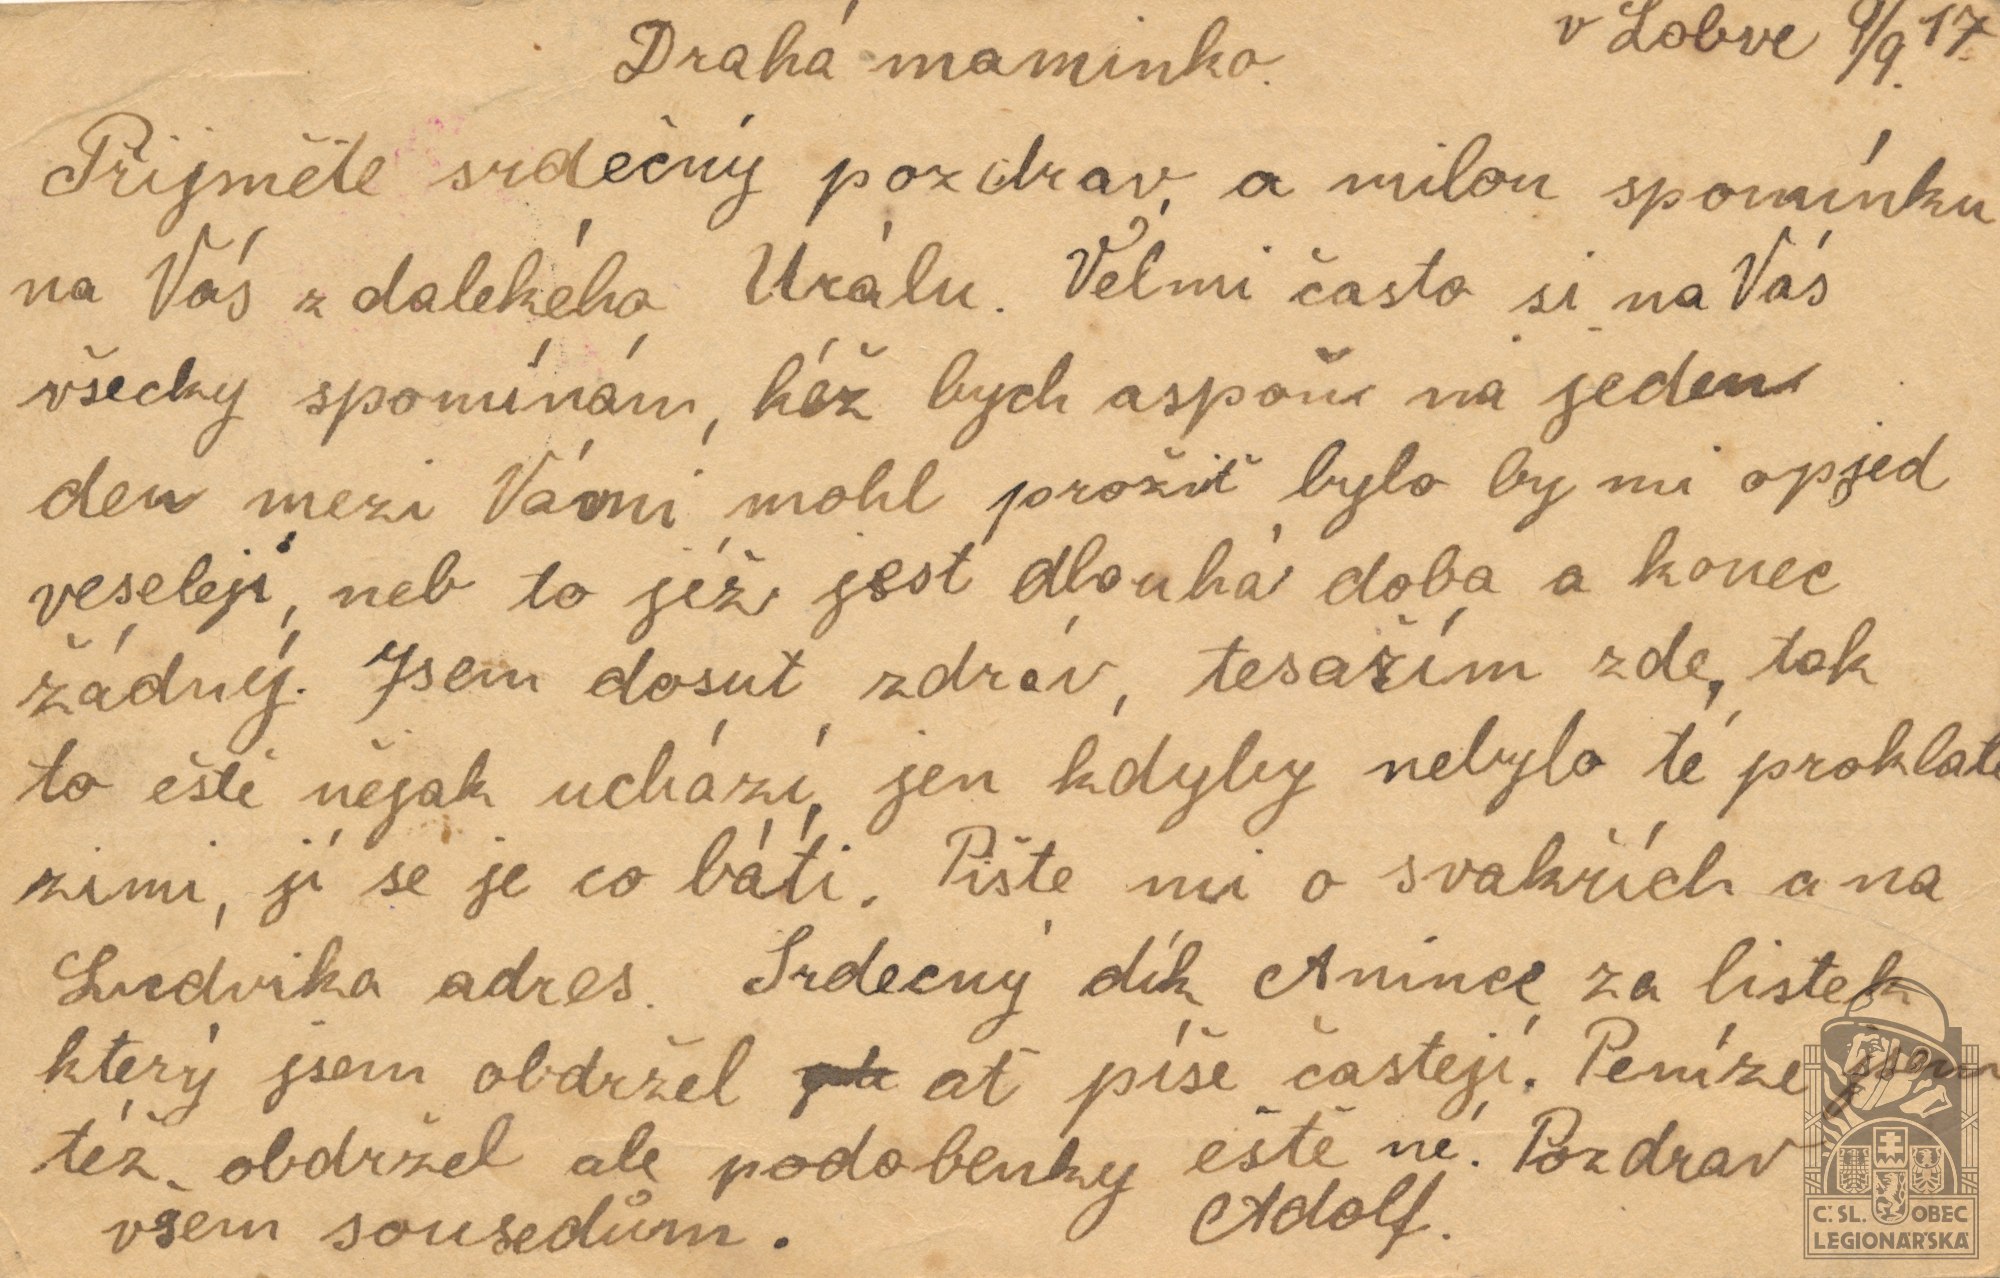 v Lobve 9/9. 17.
Drahá maminko.
Přijměte srdečný pozdrav, a milou spomínku
na Vás z dalekého Urálu. Velmi často si na Vás
všecky spomínám, kéž bych aspoň na jeden
den mezi Vámi mohl prožit bylo by mi opjed
veseleji, neb to již jest dlouhá doba a konec
žádný. Jsem dosut zdráv, tesařím zde, tak
to eště nějak uchází, jen kdyby nebylo té proklaté
zimi, jí se je co báti. Pište mi o svakřích a na
Ludvika adres. Srdecný dík Anince za listek
který jsem obdržel ať píše častejí. Peníze jsem
též obdržel ale podobenky eště né. Pozdrav
všem sousedům. Adolf.
Č.SL. OBEC
LEGIONÁŘSKÁ